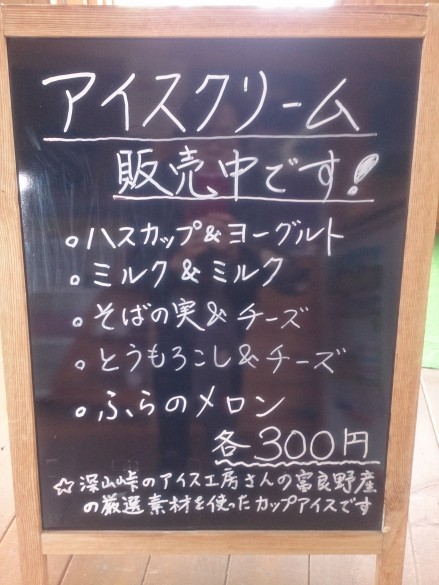 アイスクリーム
販売中です!
。ハスカップ&ヨーグルト
。ミルク&ミルク
。そばの実&チーズ
。とうもろこし&チーズ
。ふらのメロン
各300円
☆深山峠のアイス工房さんの富良野産
の厳選素材を使ったカップアイスです